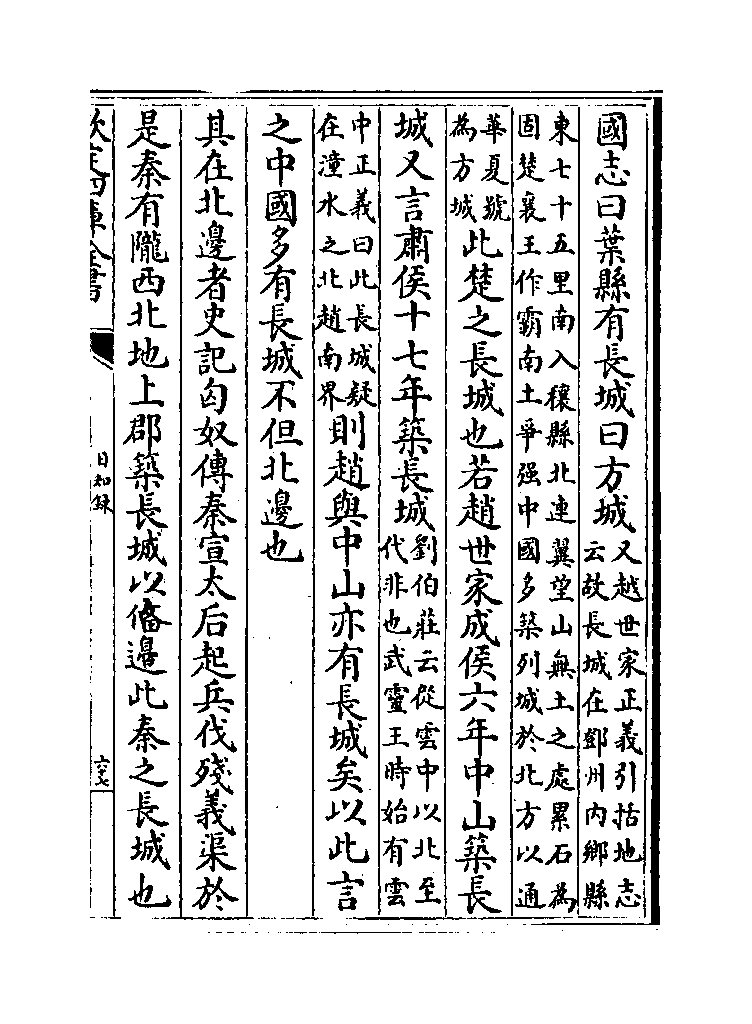 國志曰葉縣有長城曰方城又越世家正義引括地志云故長城在鄧州内鄉縣
東七十五里南入穰縣北連翼望山無土之處累石為固楚襄王作霸南土爭强中國多築列城於北方以通
華夏號為方城此楚之長城也若趙世家成侯六年中山築長
城又言肅侯十七年築長城劉伯莊云從雲中以北至代非也武靈王時始有雲
中正義曰此長城疑在潼水之北趙南界則趙與中山亦有長城矣以此言
之中國多有長城不但北邊也
其在北邊者史記匈奴傳秦宣太后起兵伐殘義渠於
是秦有隴西北地上郡築長城以備邊此秦之長城也
欽定四庫全書
日知録